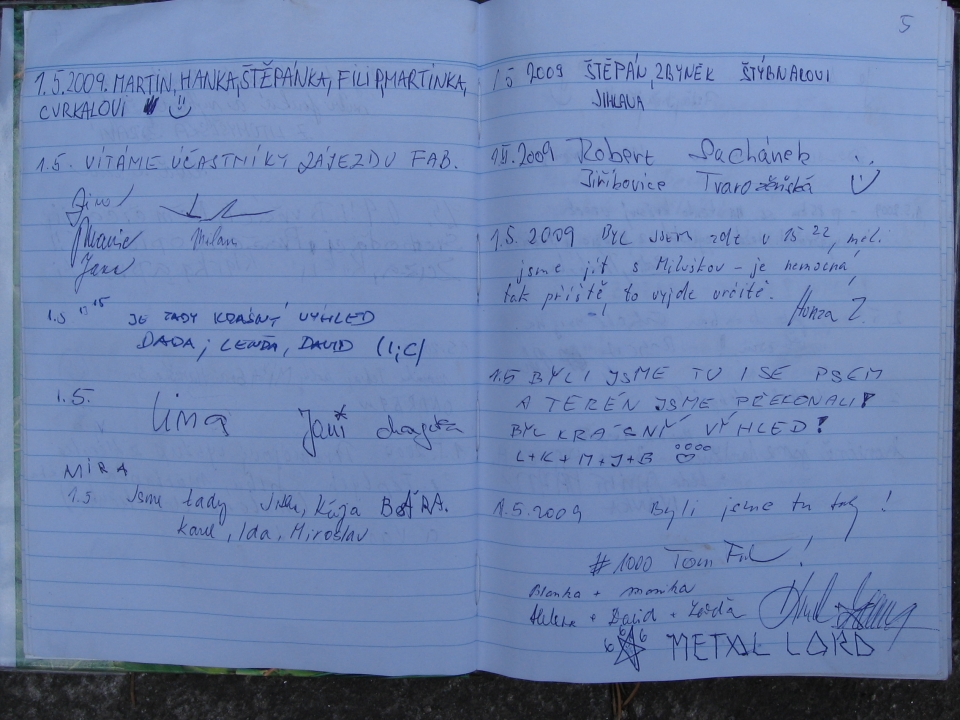 1.5.2009. MARTIN, HANKA, ŠTĚPÁNKA, FILIP, MARTINKA,
CVRKALOVI
1.5. VÍTÁME ÚČASTNÍKY ZÁJEZDU FAB.
Milan
Marie
Jana
1.5 JE TADY KRÁSNÝ VÝHLED
DADA, LENĎA, DAVID (I;C)
1.5.
MIRA
1.5. Jsme tady Jirka, Kája BÁRA.
Karel, Ida, Miroslav
5
1.5 2009 ŠTĚPÁN, ZBYNĚK ŠTÝBNAROVI
JIHLAVA
2009 Robert Pachánek
Jiříkovice Tvarožná
1.5. 2009 BYL JSEM zde v 15 22, měli
jsme jít s Miluškou - je nemocná,
tak příště to vyjde určitě.
Honza Z.
1.5 BYLI JSME TU I SE PSEM
A TERÉN JSME PŘEKONALI!
BYL KRÁSNÝ VÝHLED!
L+K+M+J+B
1.5.2009 Byli jsme tu taky!
#1000 Tom !
Blanka + monika
Helena + David + 
666 METAL LORD